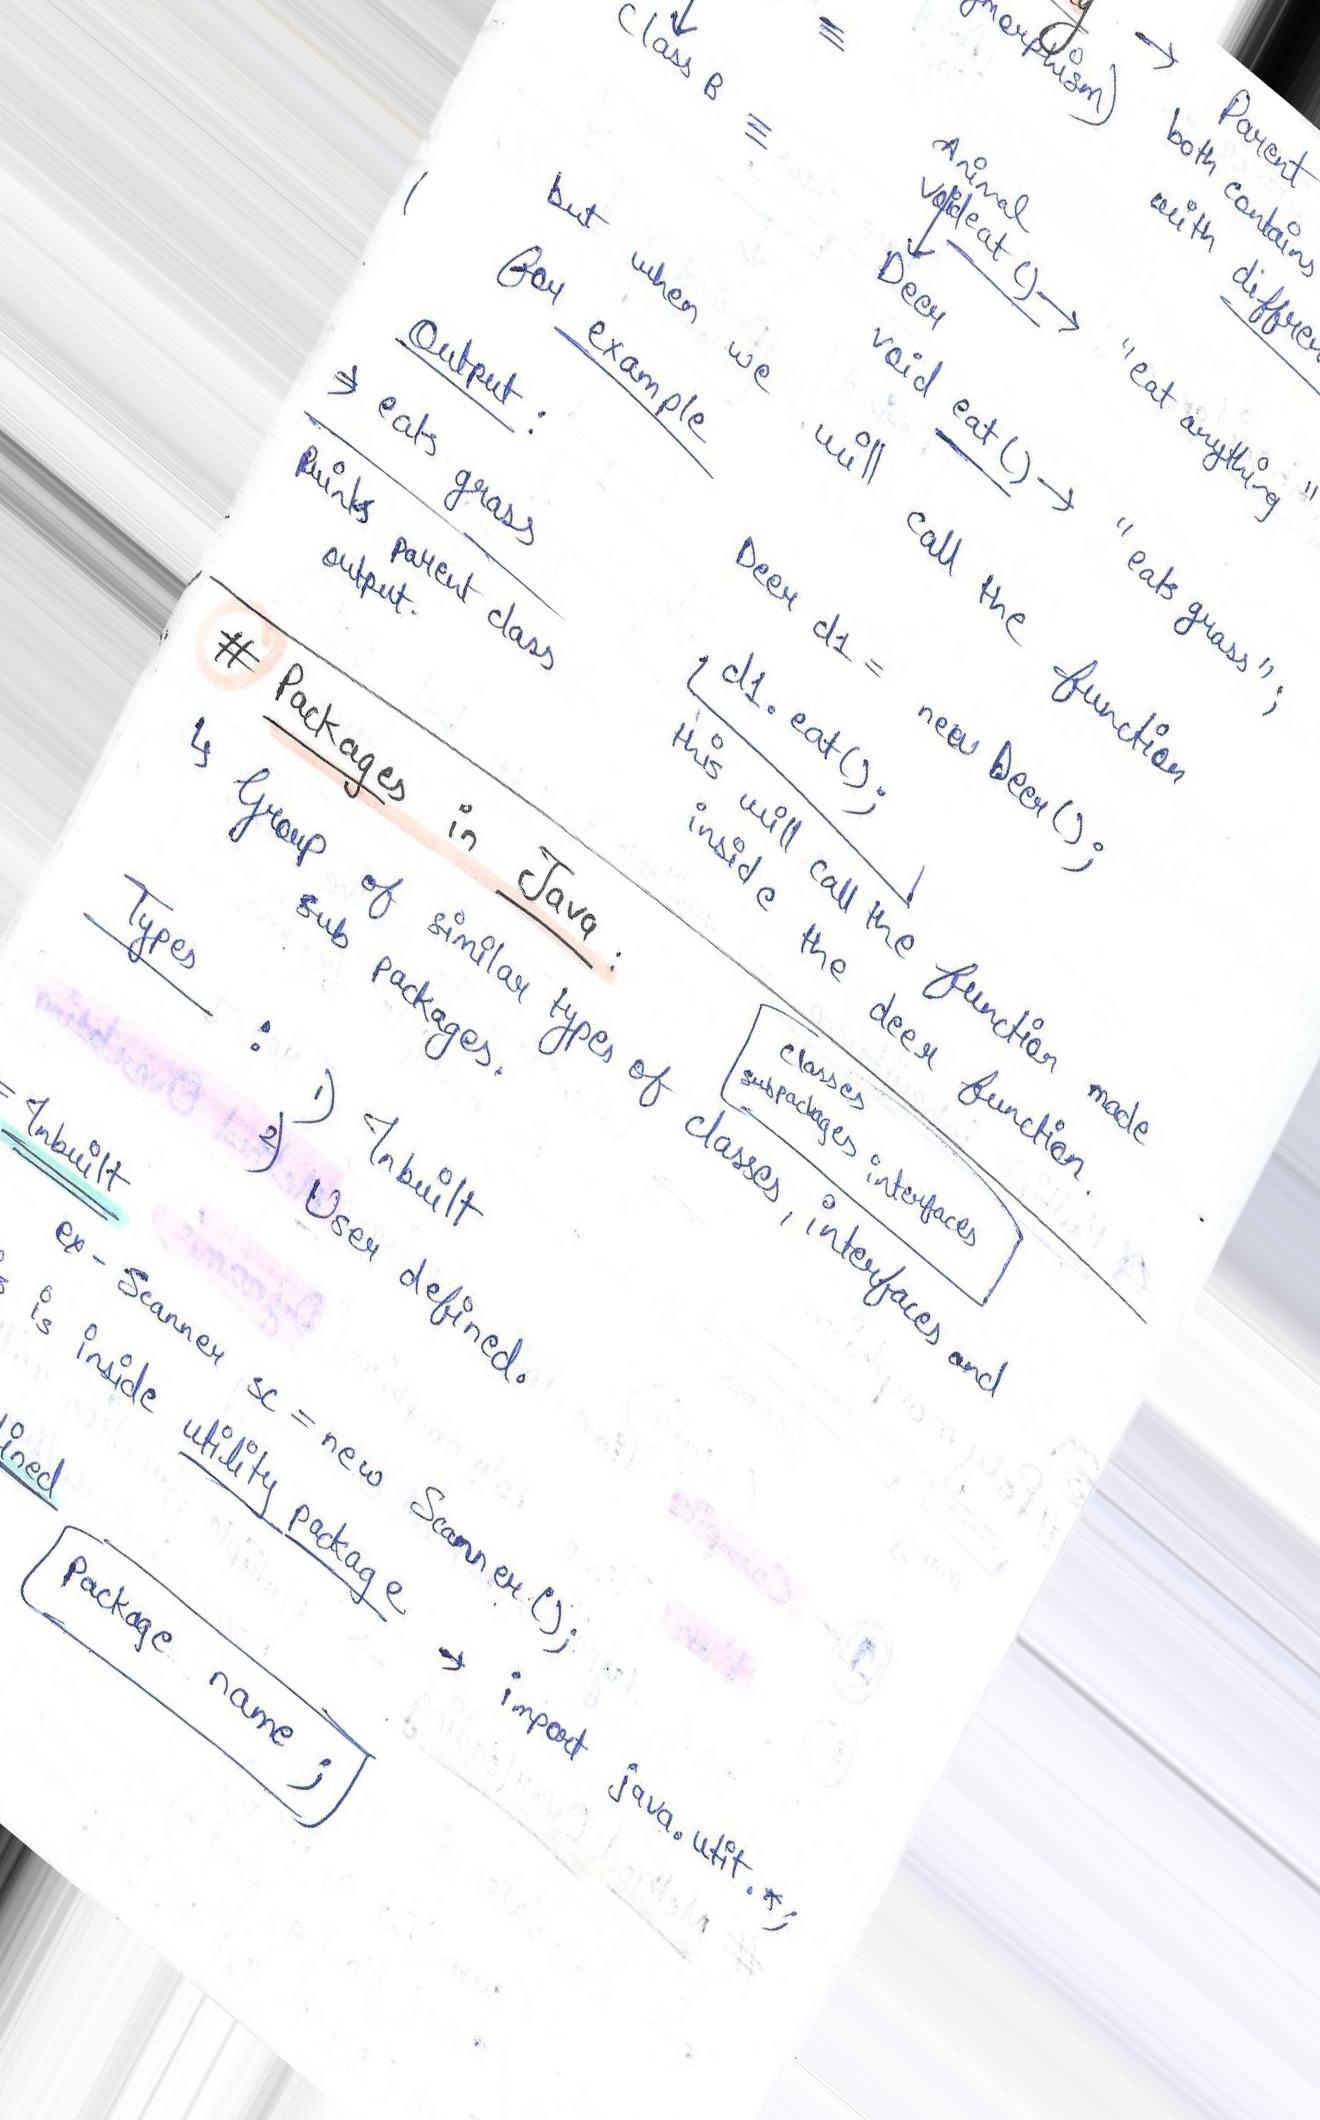 Class B
morphism) → Parent
both contains
with diffren
Animal
void eat () → "eat anything"
Deer
void eat () → "eats grass";
but when we will call the function
For example
Deer d1 = new Deer();
d1. eat();
this will call the function made
inside the deer function.
Output :
⇒ eats grass
prints parent class
output.
# Packages in Java :
↳ Group of similar types of classes, interfaces and
sub packages.
classes
subpackages interfaces
Types : 1) Inbuilt
2) User defined.
= Inbuilt
ex - Scanner sc = new Scanner();
is inside utility package → import java.util.*;
ined
Package name ;